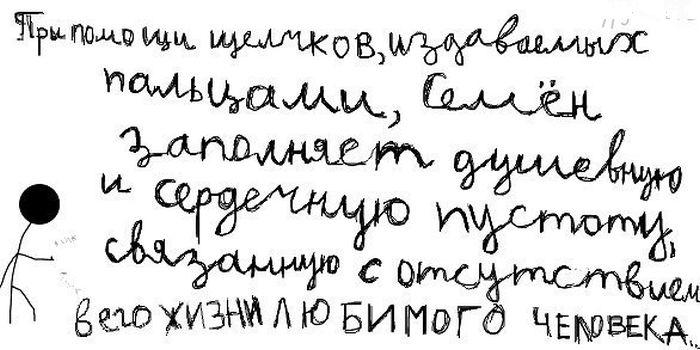 При помощи щелчков, издаваемых
пальцами, Семён
заполняет душевную
и сердечную пустоту,
связанную с отсутствием
в его ЖИЗНИ ЛЮБИМОГО ЧЕЛОВЕКА..